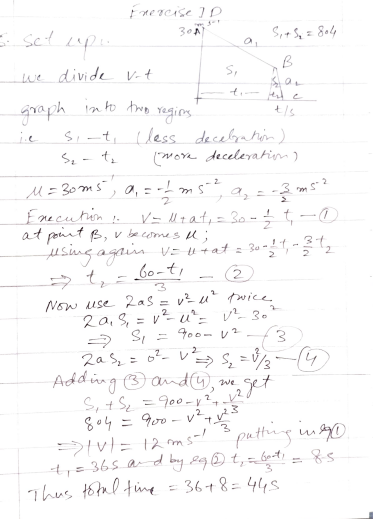 Exercise 1D
5. Set up:
30 A a₁ S₁+S₂ = 804
B
S₁ S₂ a₂
t₁ t₂ c
t/s
we divide v-t
graph into two regions
i.e S₁ - t₁ (less deceleration)
S₂ - t₂ (more deceleration)
u = 30 ms⁻¹, a₁ = -1/2 ms⁻², a₂ = -3/2 ms⁻²
Execution :- V = u+at₁ = 30 - 1/2 t₁ - ①
at point B, v becomes u;
using again v = u+at = 30 - 1/2 t₁ - 3/2 t₂
⇒ t₂ = 60-t₁/3 - ②
Now use 2as = v² - u² twice
2a₁S₁ = v² - u² = v² - 30²
⇒ S₁ = 900 - v² - ③
2aS₂ = 0² - v² ⇒ S₂ = v²/3 - ④
Adding ③ and ④, we get
S₁ + S₂ = 900 - v² + v²/3
804 = 900 - v² + v²/3
⇒ |v| = 12 ms⁻¹ putting in eq ①
t₁ = 36s and by eq ② t₂ = 60-t₁/3 = 8s
Thus total time = 36+8 = 44s